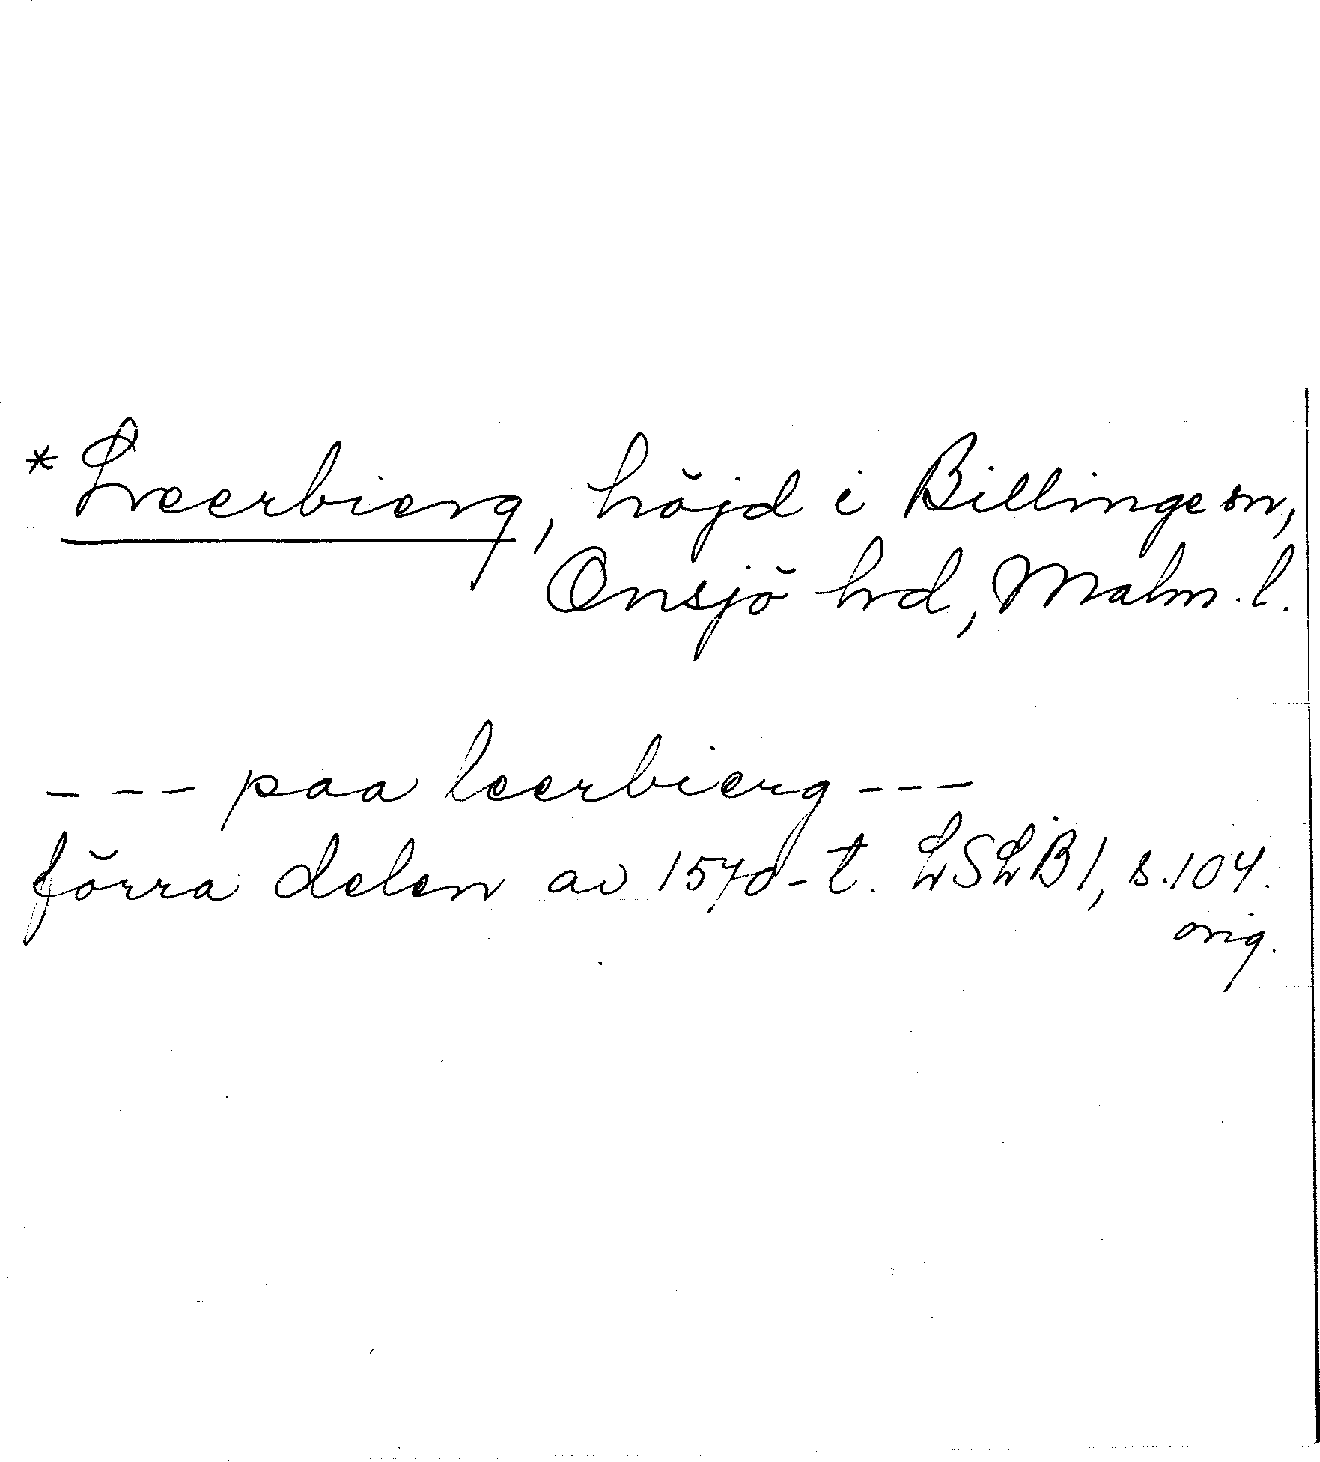 *Leerbierg, höjd i Billinge sn,
Onsjö hd, Malm. l.
--- paa leerbierg ---
förra delen av 1570-t. LSLB1, s. 104.
orig.